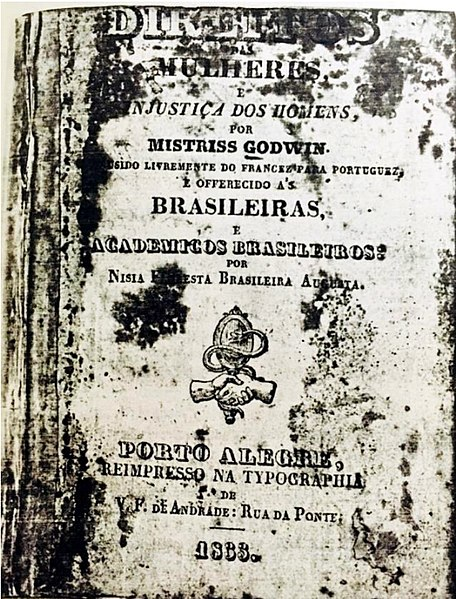 DIREITOS
DAS
MULHERES,
E
INJUSTIÇA DOS HOMENS,
POR
MISTRISS GODWIN.
LIVREMENTE DO FRANCEZ PARA PORTUGUEZ,
E OFFERECIDO A'S
BRASILEIRAS,
E
ACADEMICOS BRASILEIROS:
POR
NISIA FLORESTA BRASILEIRA AUGUSTA.
PORTO ALEGRE,
REIMPRESSO NA TYPOGRAPHIA
DE
V. F. DE ANDRADE: RUA DA PONTE:
1833.